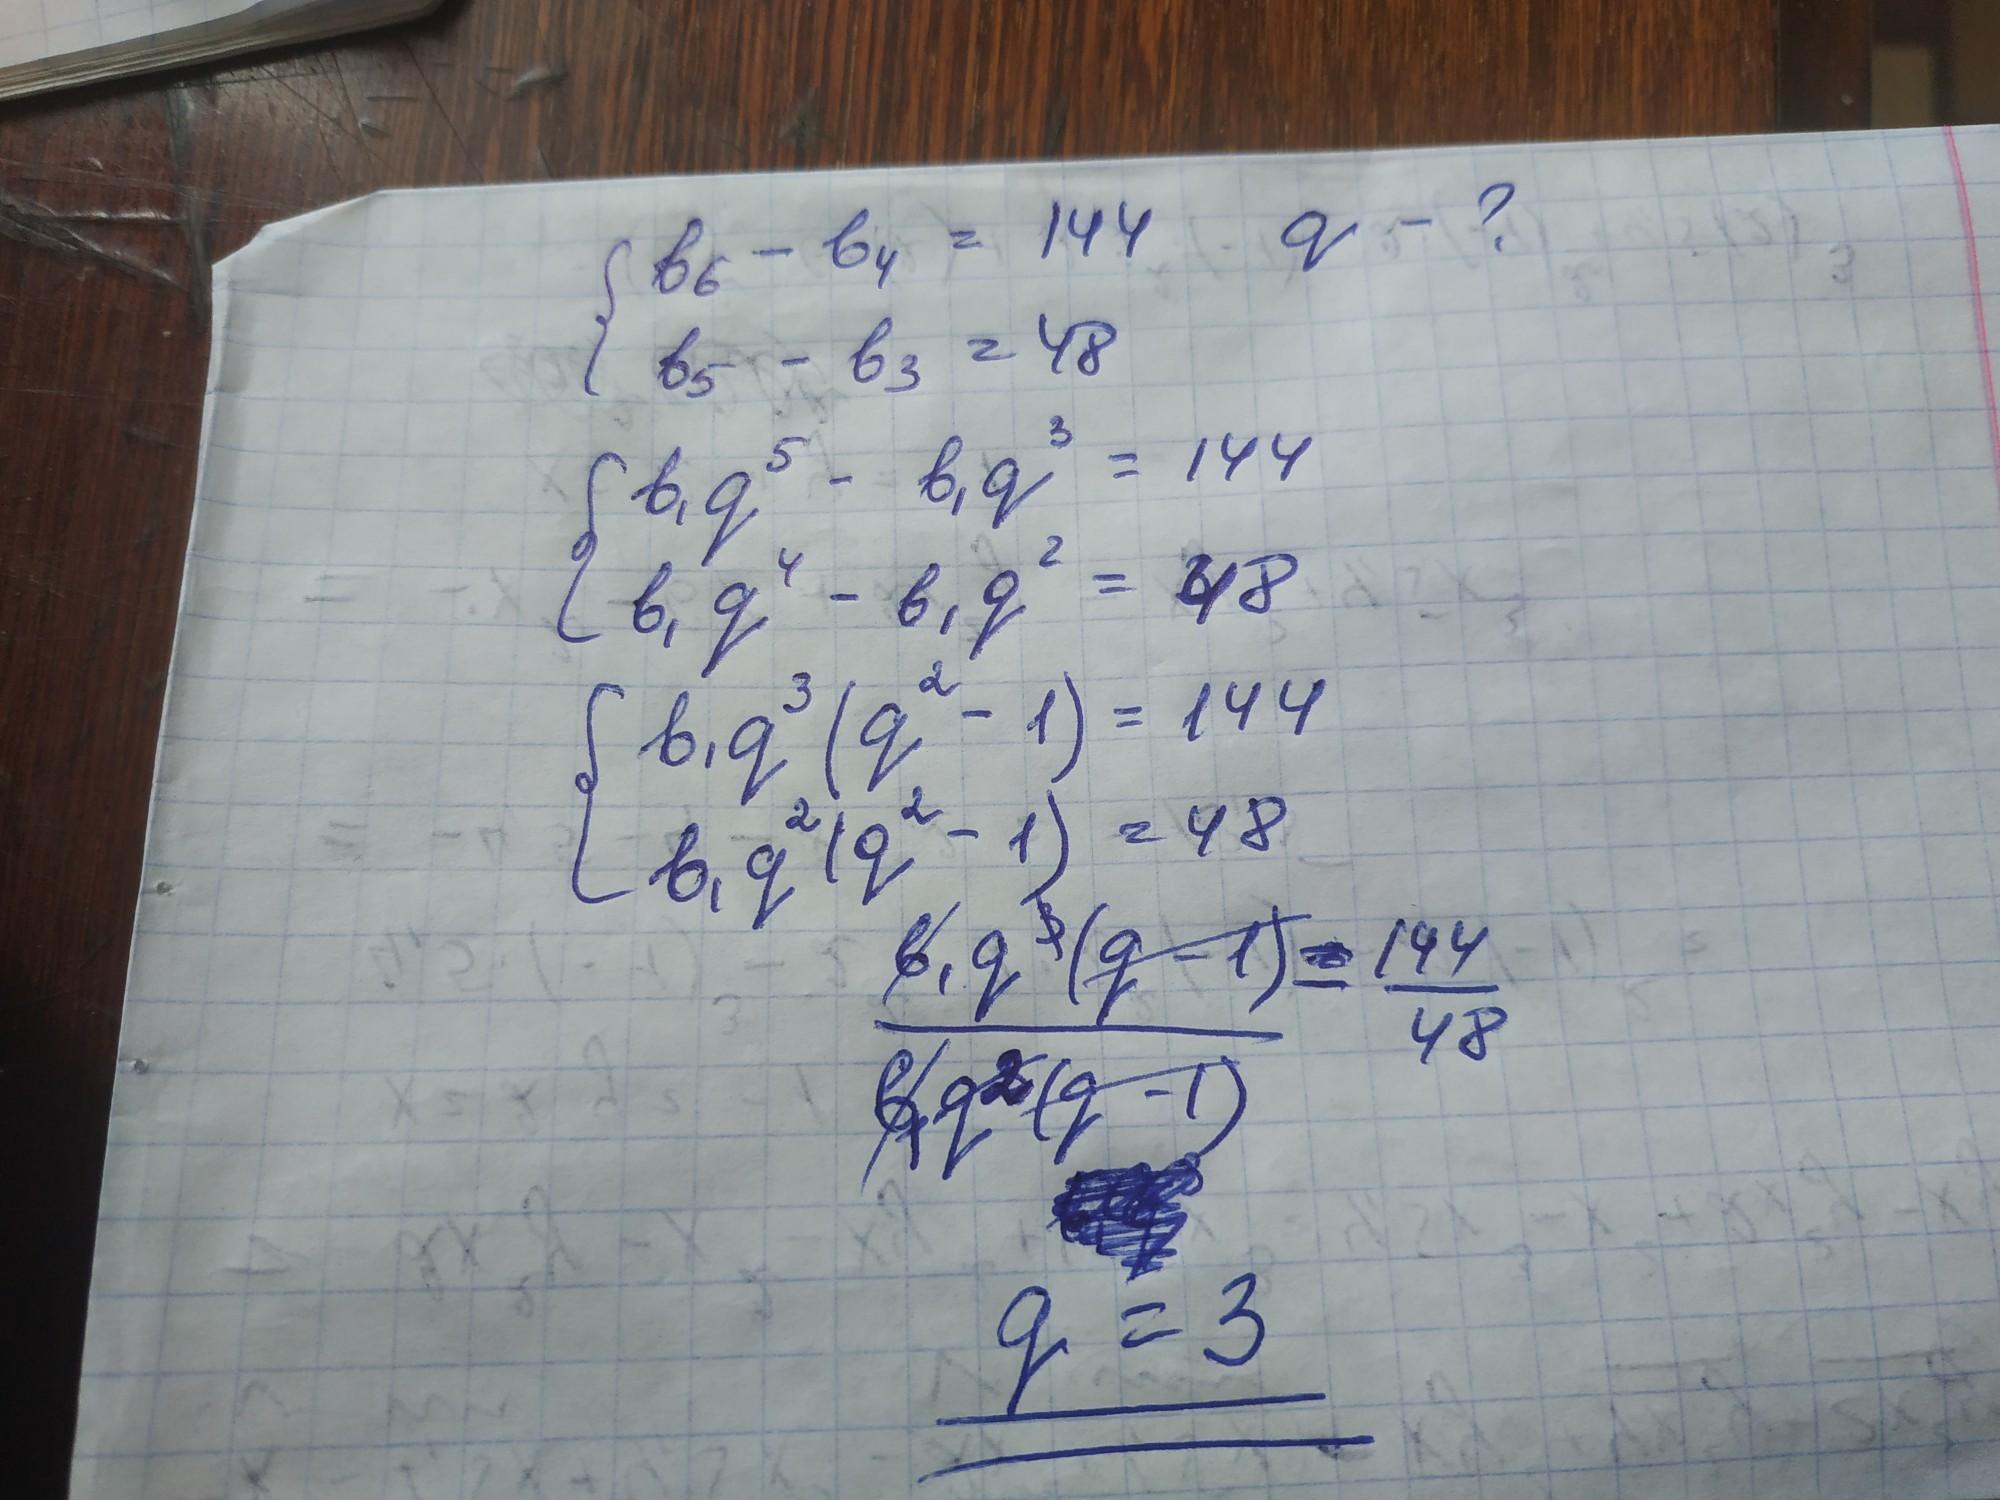 b₆ - b₄ = 144 q - ?
b₅ - b₃ = 48
b₁q⁵ - b₁q³ = 144
b₁q⁴ - b₁q² = 48
b₁q³(q² - 1) = 144
b₁q²(q² - 1) = 48
b₁q³(q - 1) = 144
b₁q²(q - 1) 48
q = 3